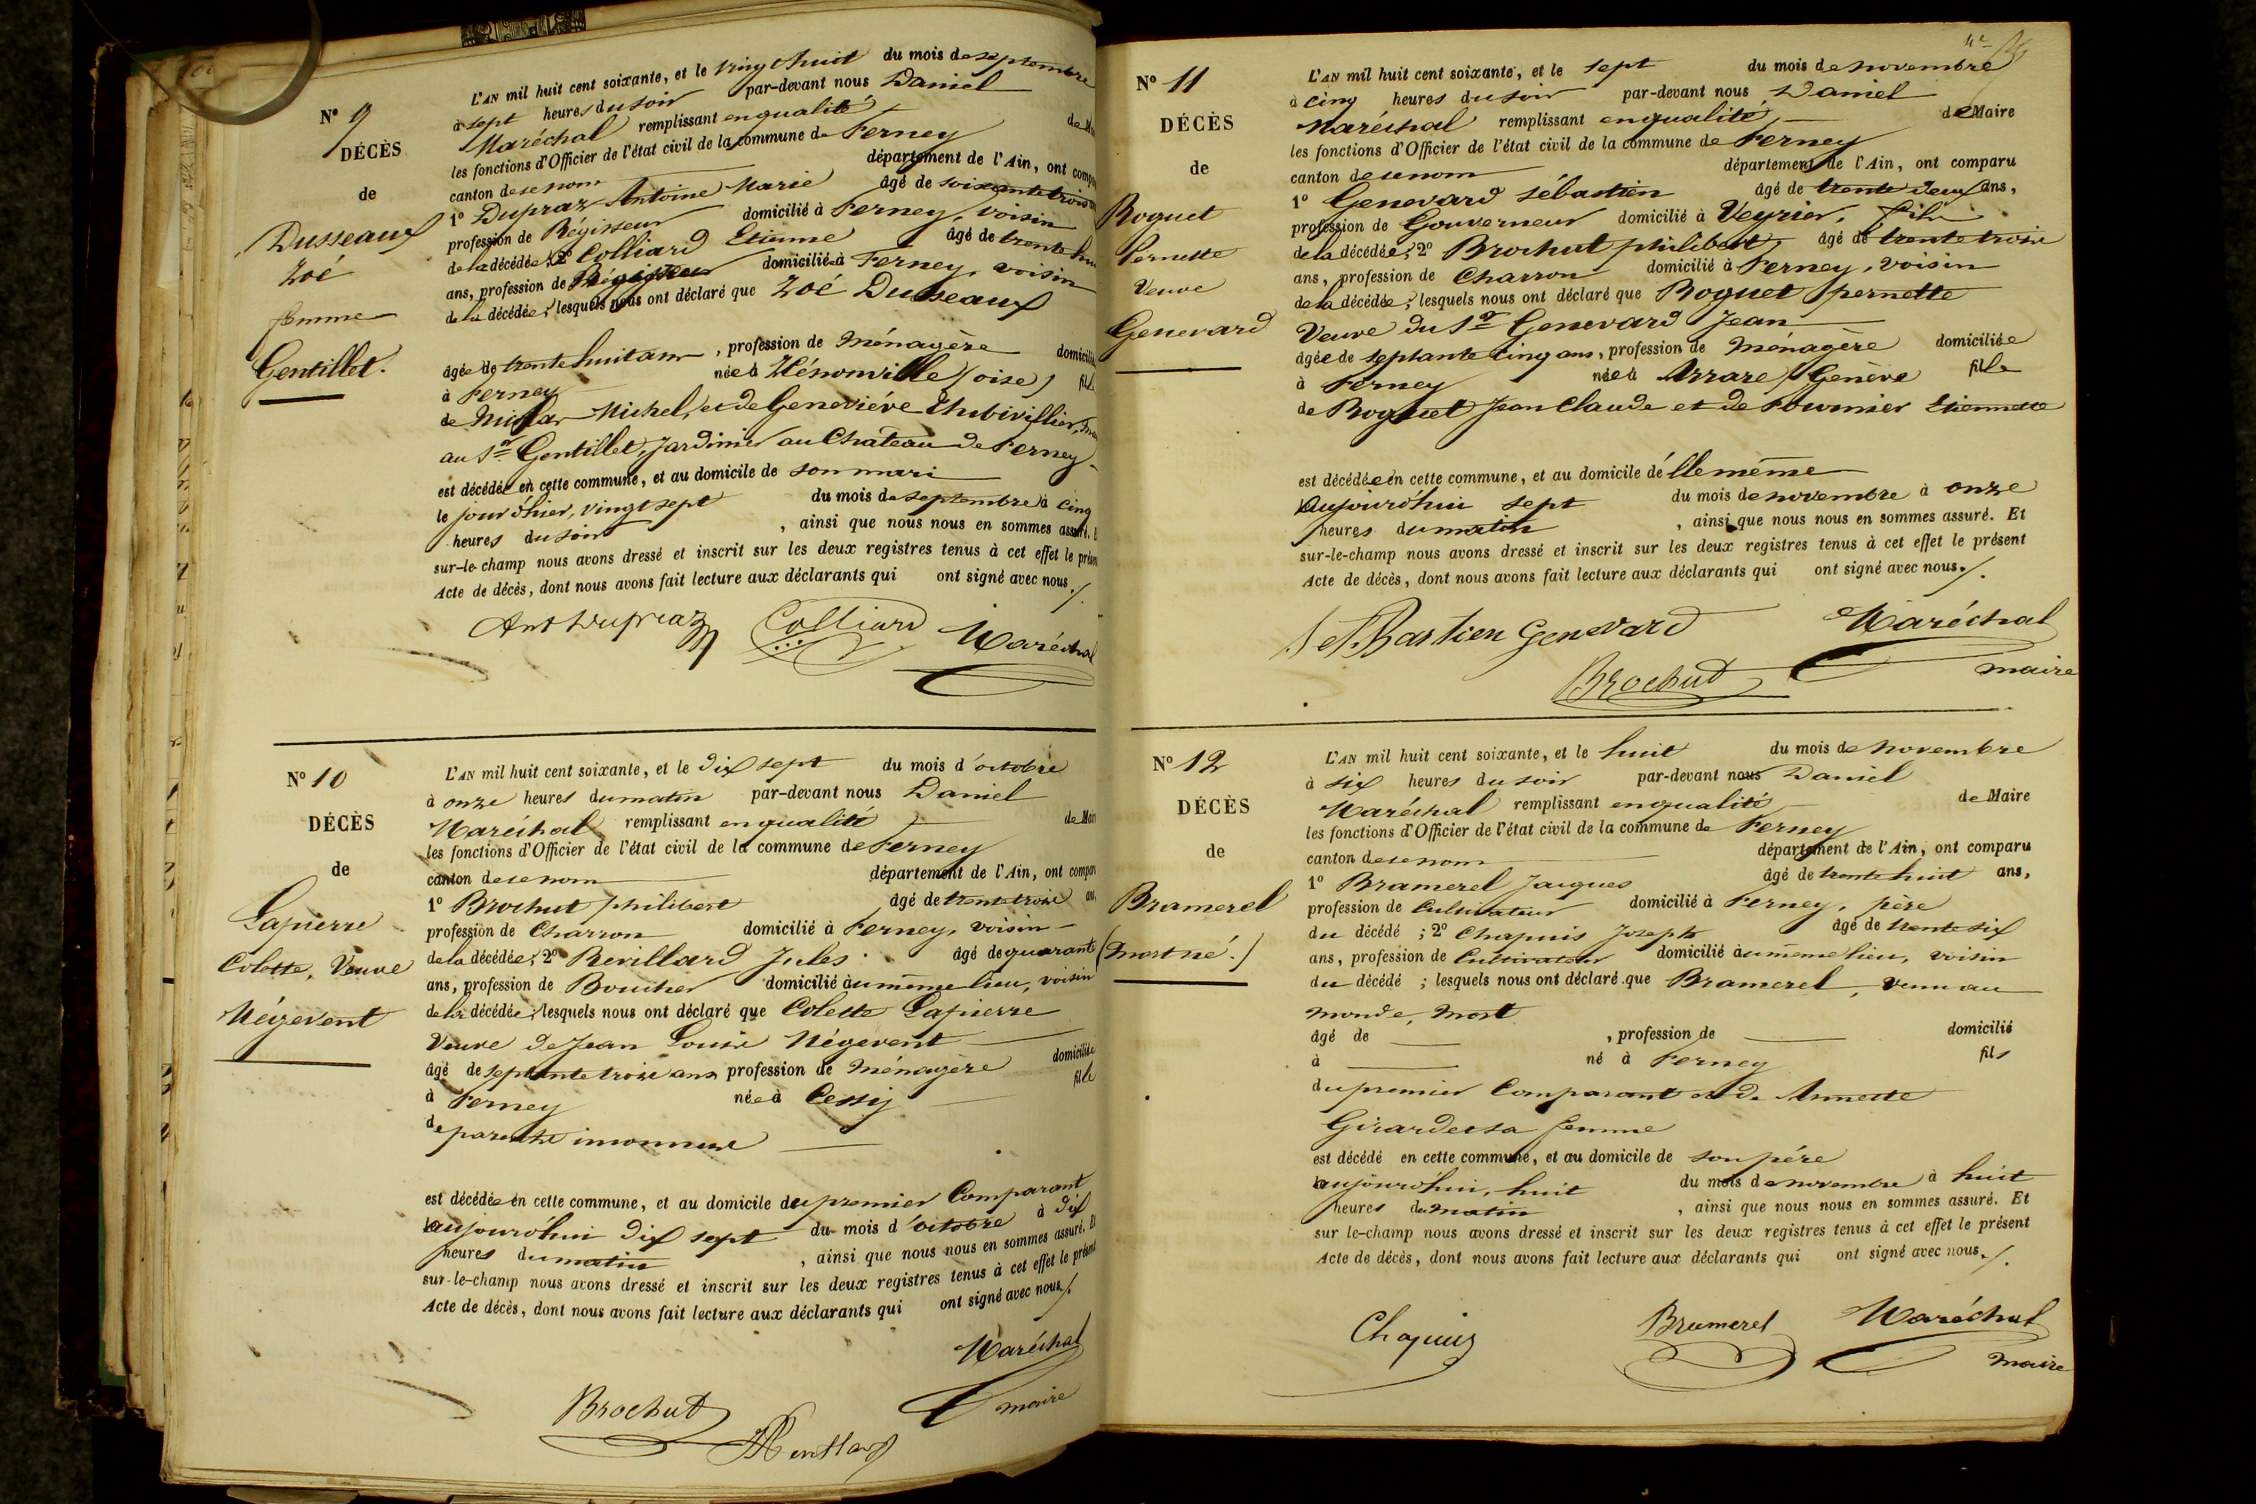 N° 9
DÉCÈS
de
Dusseaux
Zoé
femme
Gentillet.
L'AN mil huit cent soixante, et le vingt huit du mois de septembre
à sept heures du soir par-devant nous Daniel
Maréchal remplissant en qualité de
les fonctions d'Officier de l'état civil de la commune de Ferney
canton de ce nom département de l'Ain, ont
1° Dupraz Antoine Marie âgé de soixante trois
profession de Régisseur domicilié à Ferney, voisin
de la décédée; 2° Colliard Etienne âgé de trente
ans, profession de domicilié à Ferney, voisin
de la décédée; lesquels nous ont déclaré que Zoé Dusseaux
âgée de trente huit ans, profession de Ménagère
à Ferney née à Hénonville (oise)
de Michel, et de Geneviève
au Sr Gentillet, Jardinier au Château de Ferney
est décédée en cette commune, et au domicile de son mari
le jour d'hier, vingt sept du mois de septembre à cinq
heures du soir, ainsi que nous nous en sommes assuré.
sur-le-champ nous avons dressé et inscrit sur les deux registres tenus à cet effet le
Acte de décès, dont nous avons fait lecture aux déclarants qui ont signé avec nous./.
Ant Dupraz Colliard Maréchal
N° 10
DÉCÈS
de
Lapierre
Colette, Veuve
Négevent
L'AN mil huit cent soixante, et le dix sept du mois d'octobre
à onze heures du matin par-devant nous Daniel
Maréchal remplissant en qualité de
les fonctions d'Officier de l'état civil de la commune de Ferney
canton de ce nom département de l'Ain, ont
1° Brochut philibert âgé de trente trois
profession de Charron domicilié à Ferney, voisin
de la décédée; 2° Revillard Jules âgé de quarante
ans, profession de Boucher domicilié au même lieu, voisin
de la décédée; lesquels nous ont déclaré que Colette Lapierre
Veuve de Jean Louis Négevent
âgé de septante trois ans profession de Ménagère domiciliée
à Ferney née à Cessy fille
de parents inconnus
est décédée en cette commune, et au domicile du premier Comparant
aujourd'hui dix sept du mois d'octobre à dix
heures du matin, ainsi que nous nous en sommes assuré.
sur-le-champ nous avons dressé et inscrit sur les deux registres tenus à cet effet le présent
Acte de décès, dont nous avons fait lecture aux déclarants qui ont signé avec nous./.
Maréchal
maire
Brochut
Revillard
N° 11
DÉCÈS
de
Roguet
Pernette
Veuve
Genevard
L'AN mil huit cent soixante, et le sept du mois de novembre
à cinq heures du soir par-devant nous Daniel
Maréchal remplissant en qualité de Maire
les fonctions d'Officier de l'état civil de la commune de Ferney
canton de ce nom département de l'Ain, ont comparu
1° Genevard Sébastien âgé de trente deux ans,
profession de Gouverneur domicilié à Veyrier, fils
de la décédée; 2° Brochut philibert, âgé de trente trois
ans, profession de Charron domicilié à Ferney, voisin
de la décédée; lesquels nous ont déclaré que Roguet pernette
Veuve du Sr Genevard Jean
âgée de septante cinq ans, profession de Ménagère domiciliée
à Ferney née à Genève fille
de Roguet Jean Claude et de Fournier Etiennette
est décédée en cette commune, et au domicile d'elle même
aujourd'hui sept du mois de novembre à onze
heures du matin, ainsi que nous nous en sommes assuré. Et
sur-le-champ nous avons dressé et inscrit sur les deux registres tenus à cet effet le présent
Acte de décès, dont nous avons fait lecture aux déclarants qui ont signé avec nous./.
Bastien Genevard Maréchal
Brochut maire
N° 12
DÉCÈS
de
Bramerel
(mort né.)
L'AN mil huit cent soixante, et le huit du mois de novembre
à six heures du soir par-devant nous Daniel
Maréchal remplissant en qualité de Maire
les fonctions d'Officier de l'état civil de la commune de Ferney
canton de ce nom département de l'Ain, ont comparu
1° Bramerel Jacques âgé de trente huit ans,
profession de Cultivateur domicilié à Ferney, père
du décédé; 2° Chapuis Joseph âgé de trente six
ans, profession de Cultivateur domicilié au même lieu, voisin
du décédé; lesquels nous ont déclaré que Bramerel, venu au
monde, mort
âgé de, profession de domicilié
à né à Ferney fils
du premier Comparant et de Annette
Girardet sa femme
est décédé en cette commune, et au domicile de son père
aujourd'hui, huit du mois de novembre à huit
heures du matin, ainsi que nous nous en sommes assuré. Et
sur le-champ nous avons dressé et inscrit sur les deux registres tenus à cet effet le présent
Acte de décès, dont nous avons fait lecture aux déclarants qui ont signé avec nous./.
Chapuis Bramerel Maréchal
maire